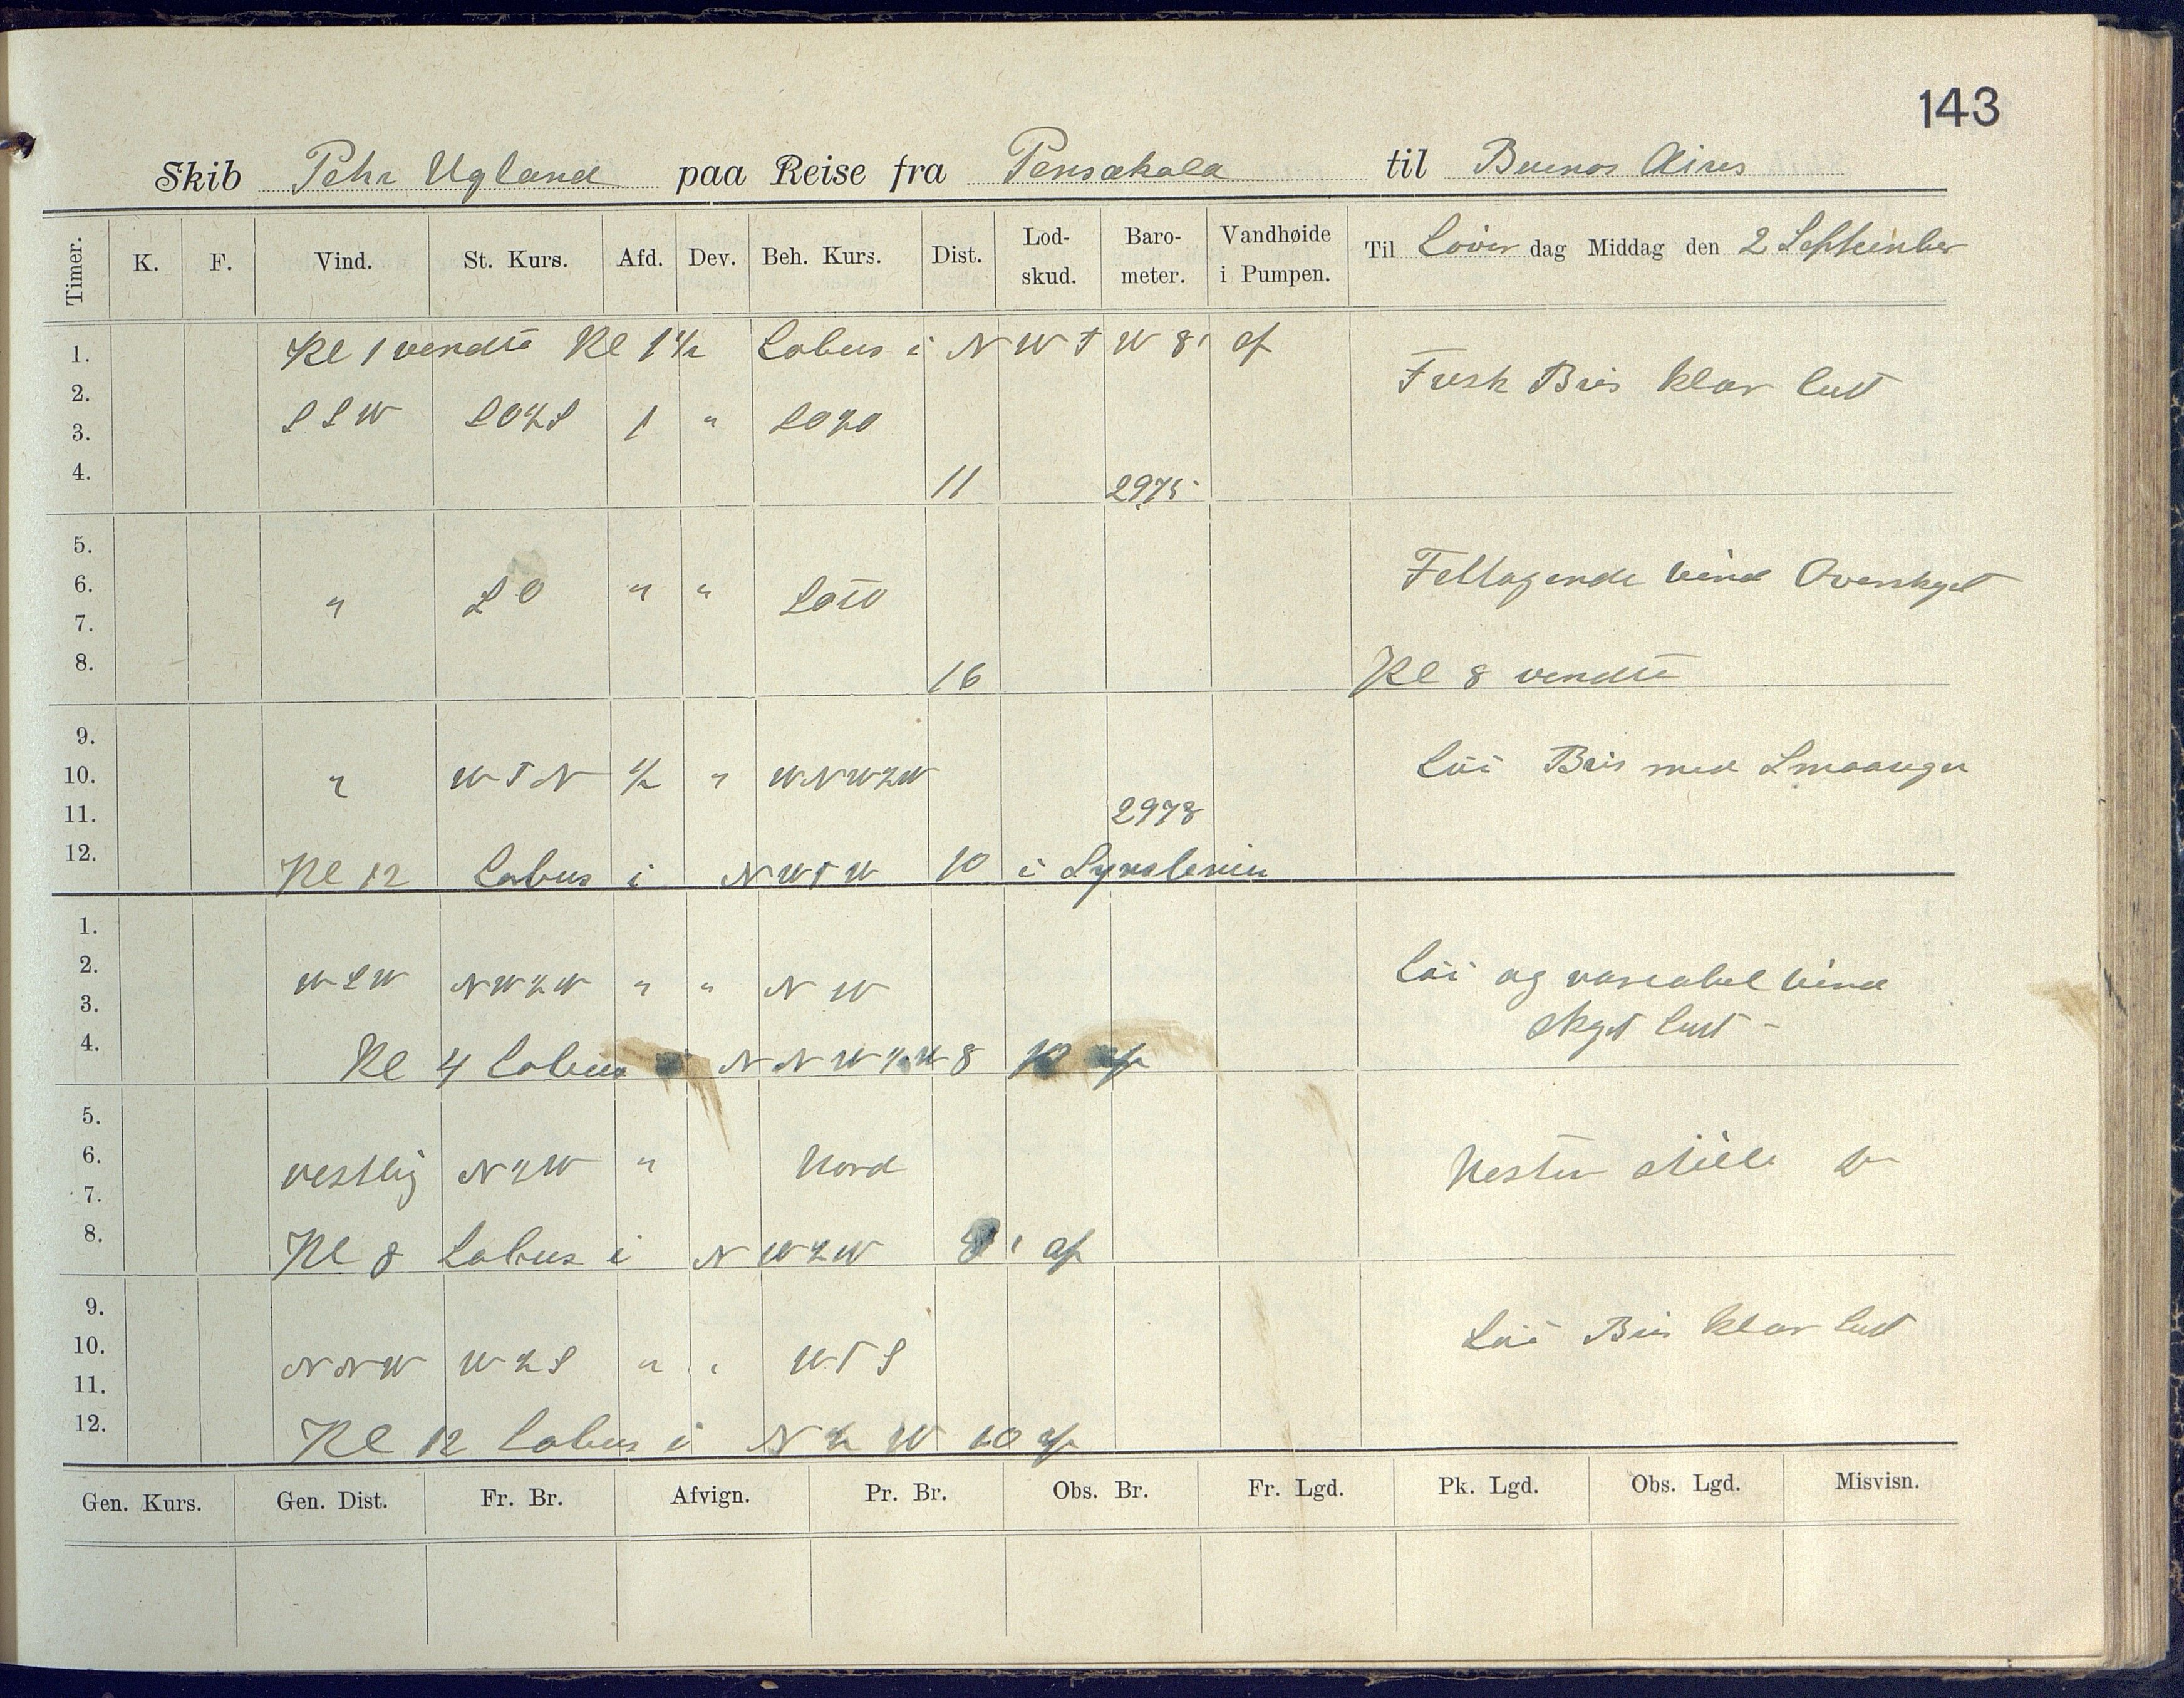 143
Skib Pehr Ugland paa Reise fra Pensakola til Buenos Aires
Timer. K. F. Vind. St. Kurs. Afd. Dev. Beh. Kurs. Dist. Lod-skud. Baro-meter. Vandhøide i Pumpen. Til Löver dag Middag den 2 September
1. Kl 1 vendte Kl 1 1/2 Lobus i N W T W 8' af
Fresk Bris klar luft
2.
3. S S W SO 1/2 S 1 " SO 1/2 O
4. 11 2975
5.
6. " S O " " SOTO
Fltagende vind Overskyet
7.
8. 16 Kl 8 vendte
9.
10. " W T N 1/2 " WNW 1/2 W
Löi Bris med
11. 2978
12. Kl 12 Lobus i NWTW 10 i
1.
2. W S W NW 1/2 W " " N W
Löi og variabel vind
3. skyet luft -
4. Kl 4 Lobus NNW 1/2 W 8 af
5.
6. vestlig N 1/2 W " Nord
Nesten stille
7.
8. Kl 8 Lobus i N W 1/2 W 8' af
9.
Löi Bris klar luft
10. N N W W 1/2 S " " W T S
11.
12. Kl 12 Lobus i N 1/2 W 10 af
Gen. Kurs. Gen. Dist. Fr. Br. Afvign. Pr. Br. Obs. Br. Fr. Lgd. Pk. Lgd. Obs. Lgd. Misvisn.